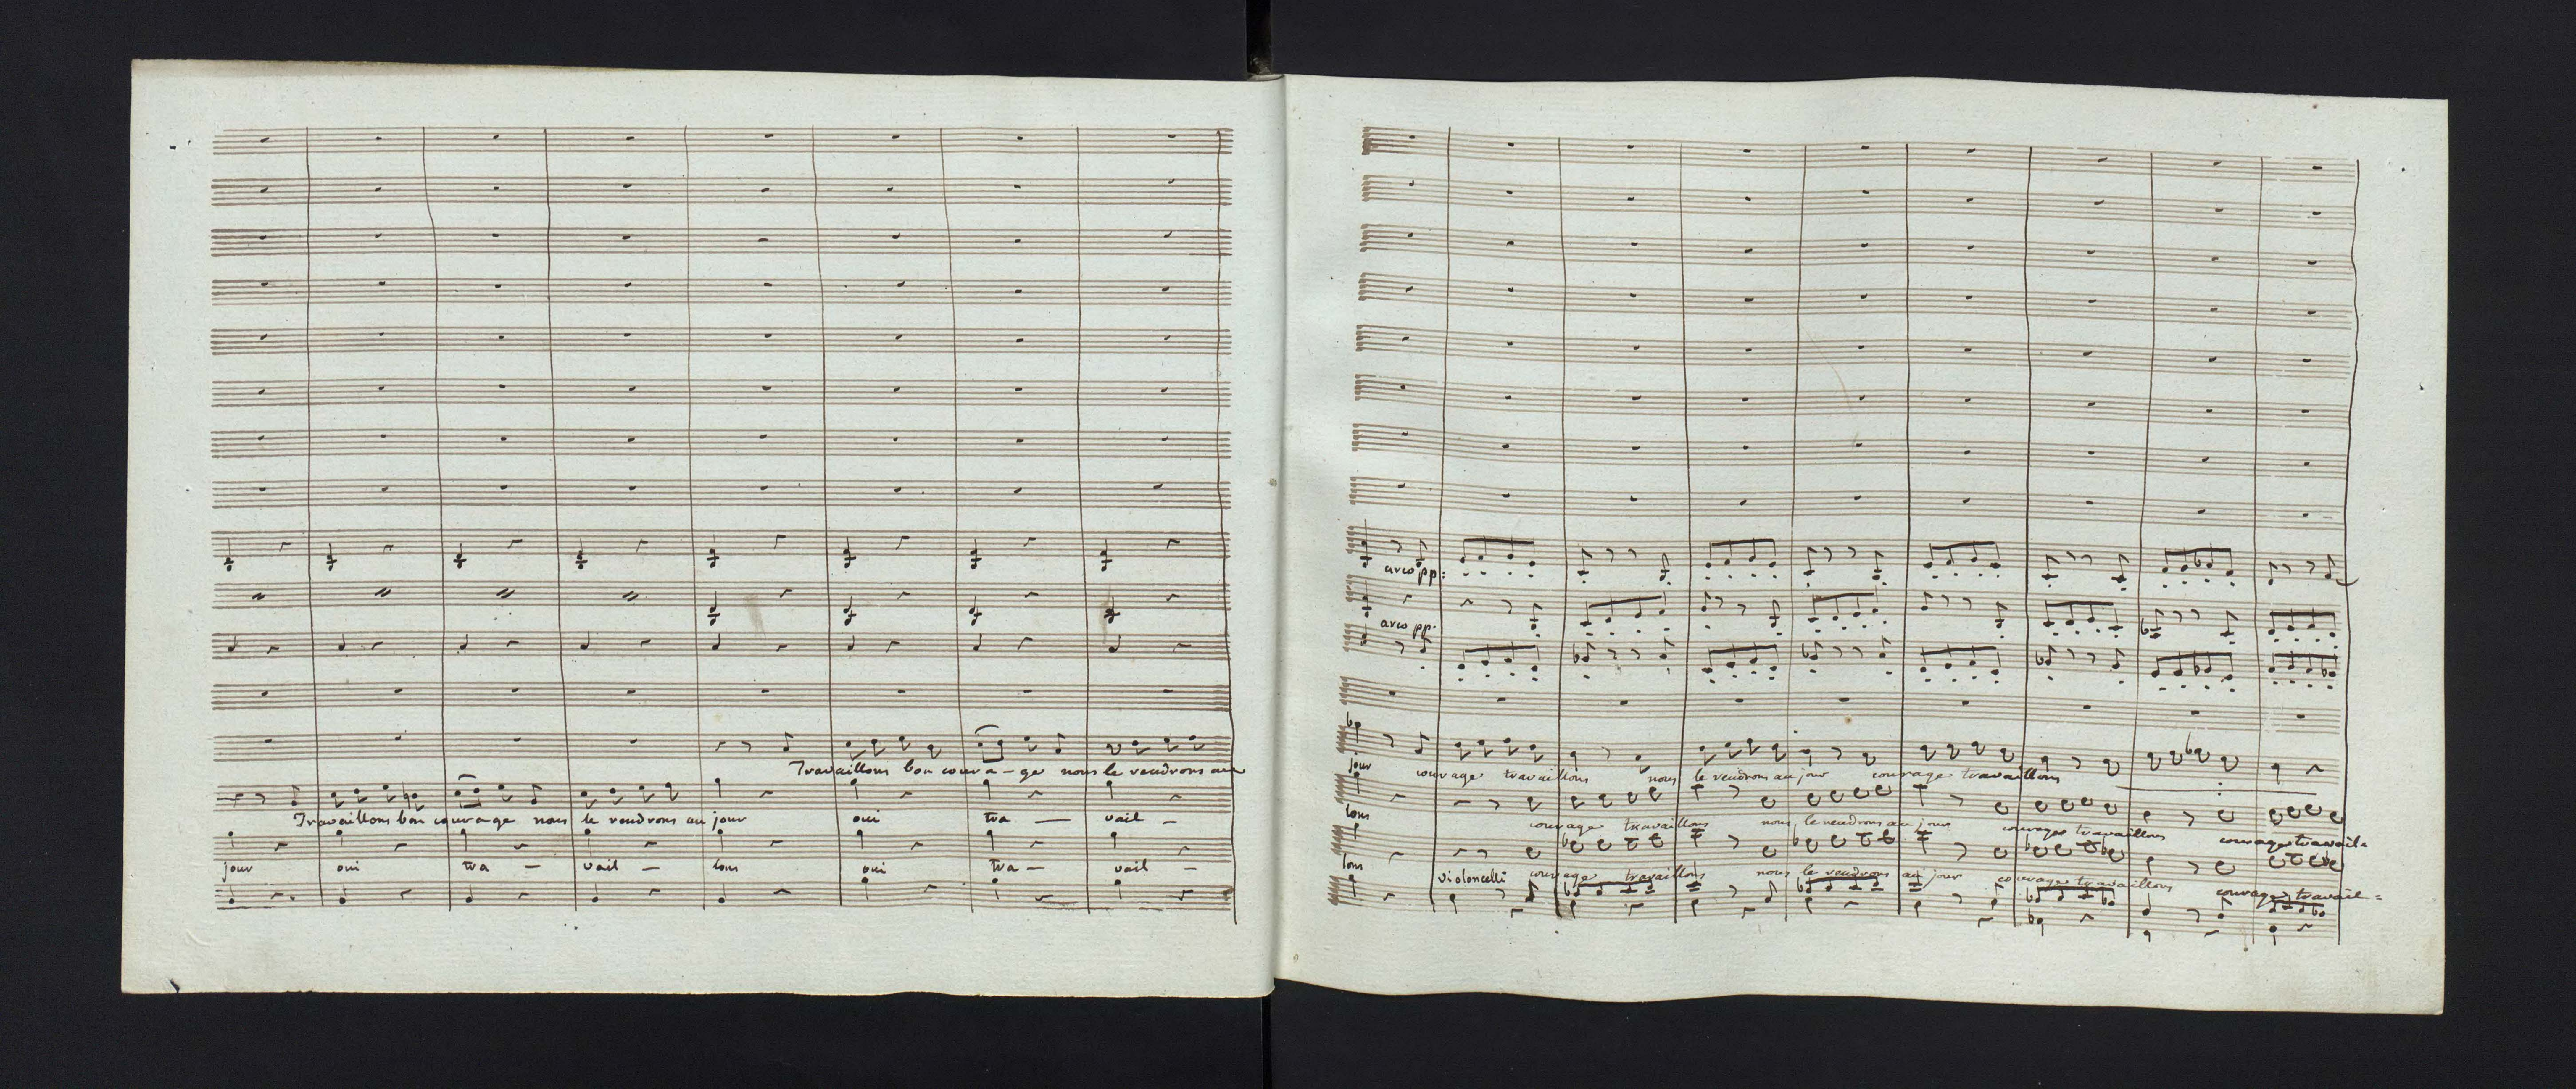 Travaillons bon coura - ge nous le rendrons au
Travaillons bon courage nous le rendrons au jour oui tra — vail -
jour oui tra — vail — lons oui tra — vail —
arco pp:
arco pp.
jour courage travaillons nous le rendrons au jour courage travaillons
lons courage travaillons nous le rendrons au jour courage travaillons courage travail=
lons violoncelli courage travaillons nous le rendrons au jour courage travaillons courage travail=